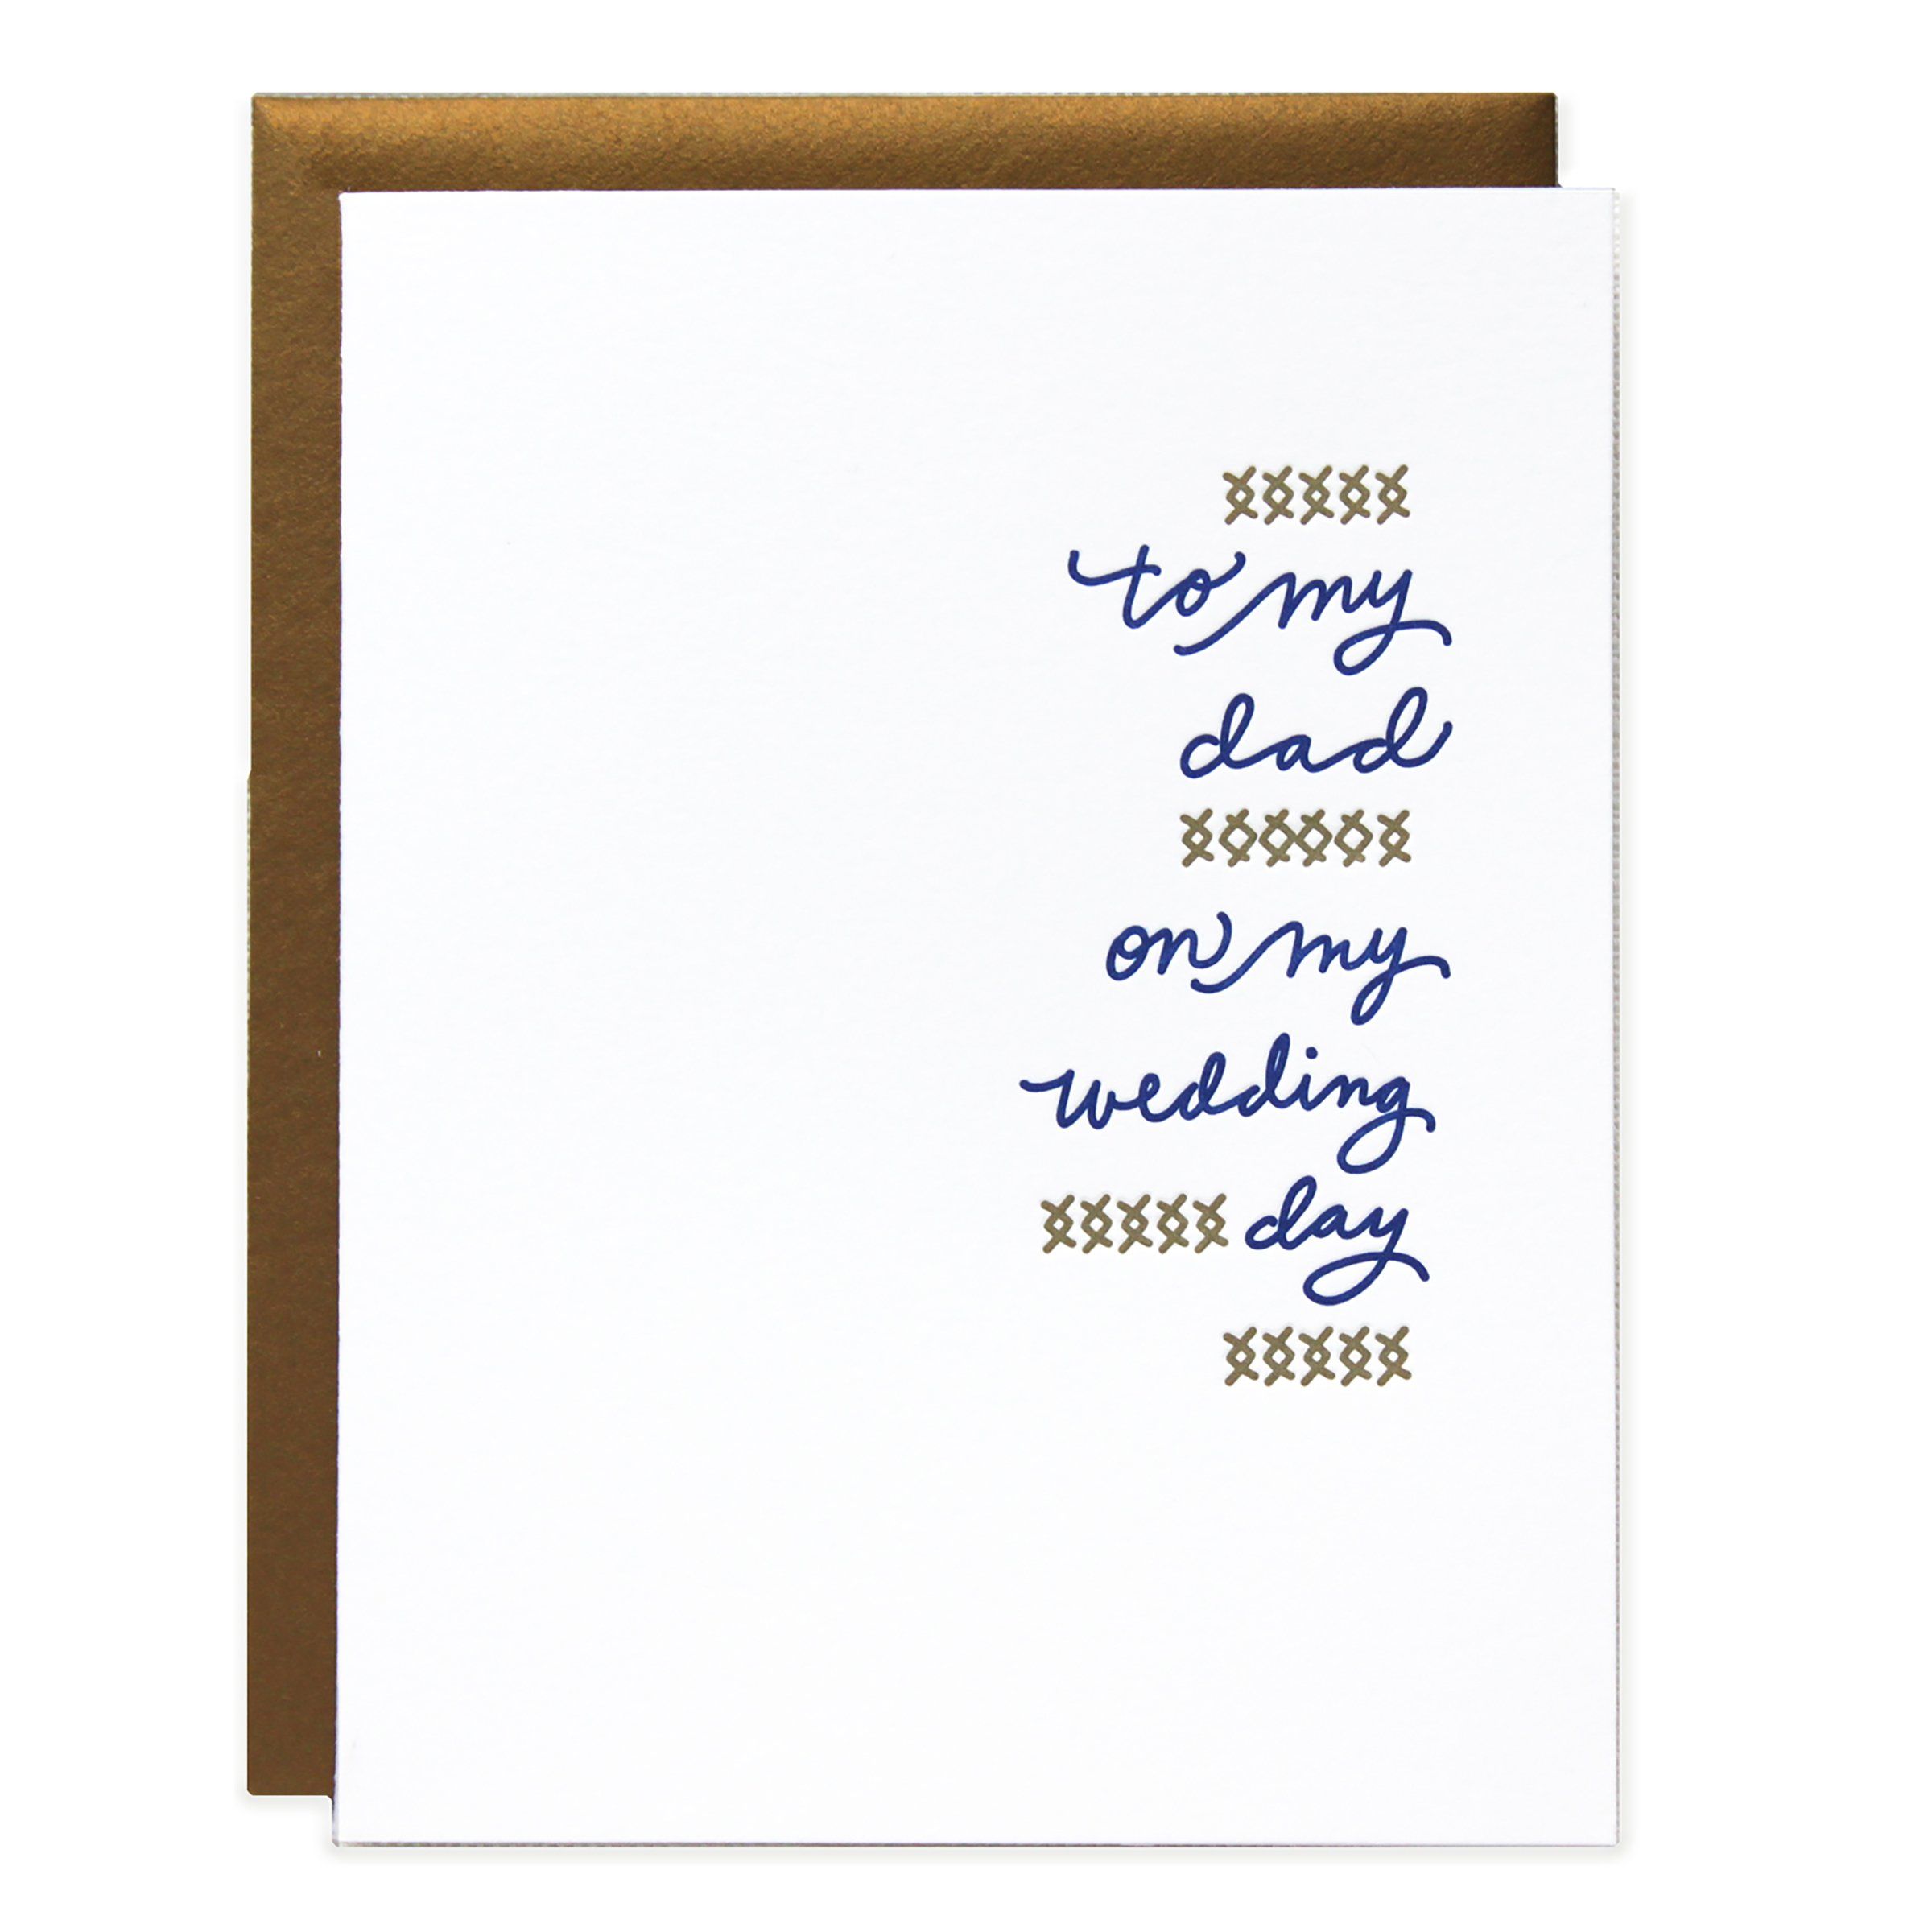 to my
dad
on my
wedding
day